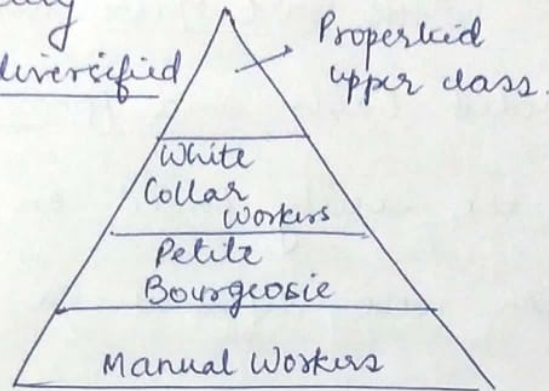 diversified
Propertied
upper class.
White
Collar
Workers
Petite
Bourgeosie
Manual Workers